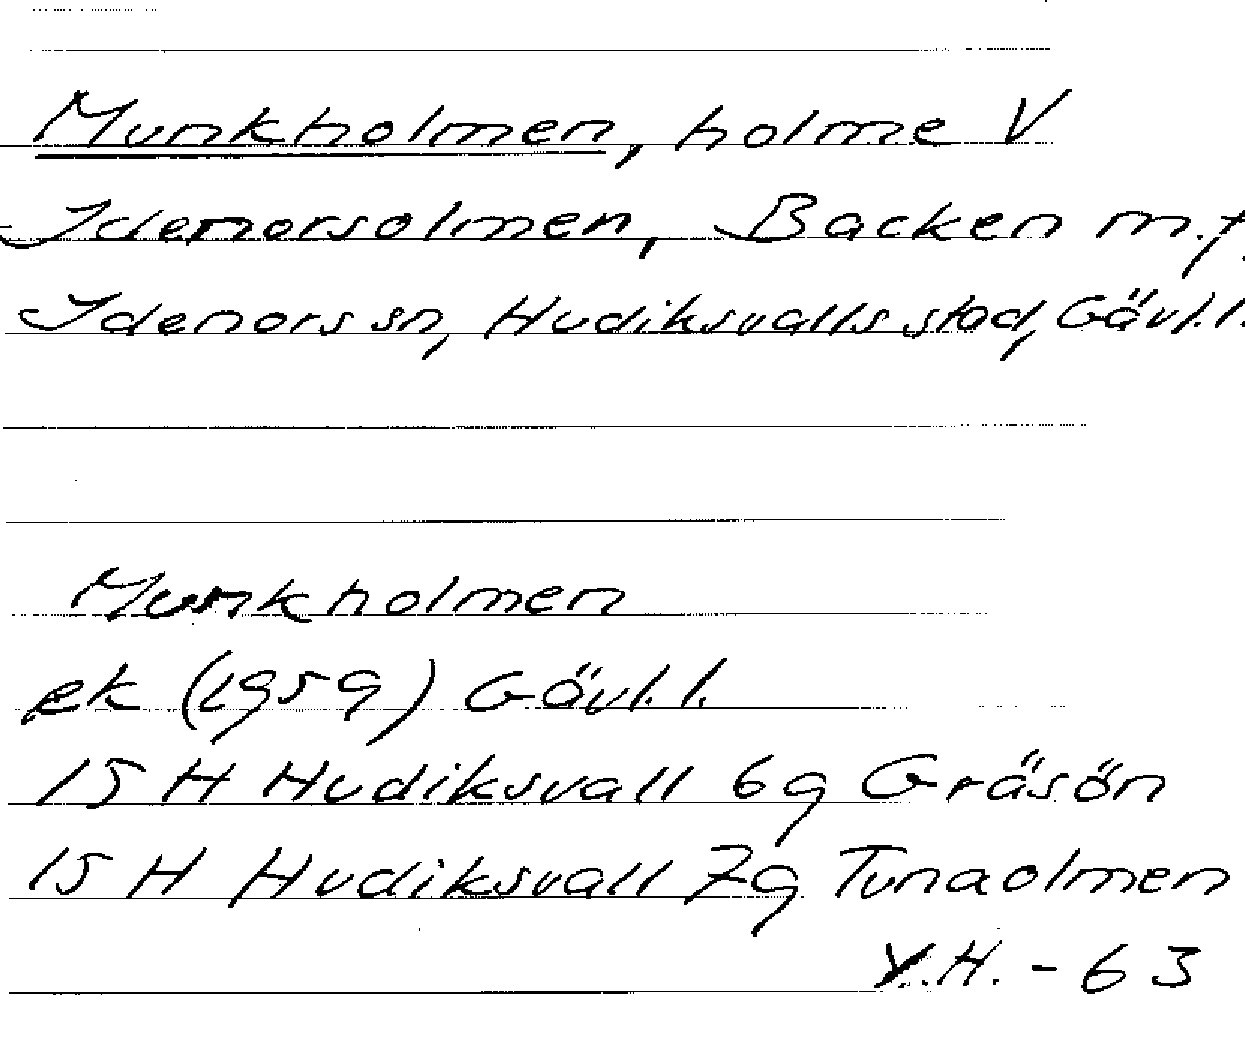 Munkholmen, holme V
Idenorsolmen, Backen m.f,
Idenors sn, Hudiksvalls stad, Gävl.l.
Munkholmen
ek (1959) Gävl.l.
15 H Hudiksvall 6g Gräsön
15 H Hudiksvall 7g Tunaolmen
Y.H. - 63